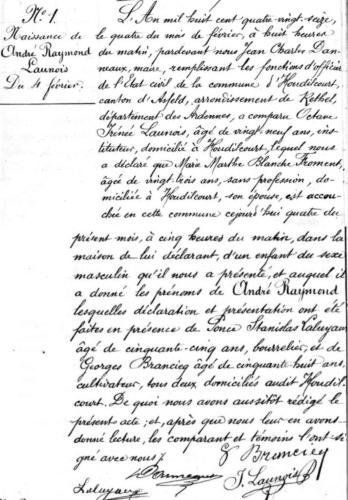 No. 1.
Naissance de
André Raymond
Launois
Du 4 février.
L'An mil huit cent quatre-vingt-seize,
le quatre du mois de février, à huit heures
du matin, pardevant nous Jean Charles Dan-
neaux, maire, remplissant les fonctions d'officier
de l'Etat-civil de la commune d'Houdilcourt,
canton d'Asfeld, arrondissement de Rethel,
département des Ardennes, a comparu Octave
Irénée Launois, âgé de vingt-neuf ans, ins-
tituteur, domicilié à Houdilcourt, lequel nous
a déclaré que Marie Marthe Blanche Froment,
âgée de vingt-trois ans, sans profession, do-
miciliée à Houdilcourt, son épouse, est accou-
chée en cette commune cejourd'hui quatre du
présent mois, à cinq heures du matin, dans la
maison de lui déclarant, d'un enfant du sexe
masculin qu'il nous a présenté, et auquel il
a donné les prénoms de André Raymond
lesquelles déclaration et présentation ont été
faites en présence de Ponce Stanislas Laluyaux
âgé de cinquante-cinq ans, bourrelier, et de
Georges Brancieq âgé de cinquante-huit ans,
cultivateur, tous deux domiciliés audit Houdil-
court. De quoi nous avons aussitôt rédigé le
présent acte; et, après que nous leur en avons
donné lecture, les comparant et témoins l'ont si-
gné avec nous.
J. Launois
Laluyaux